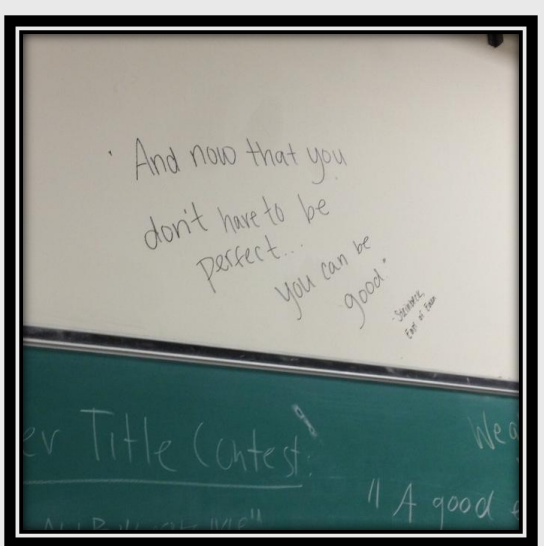 "And now that you
don't have to be
perfect...
you can be
good."
- Steinbeck,
East of Eden
Title Contest:
"A good